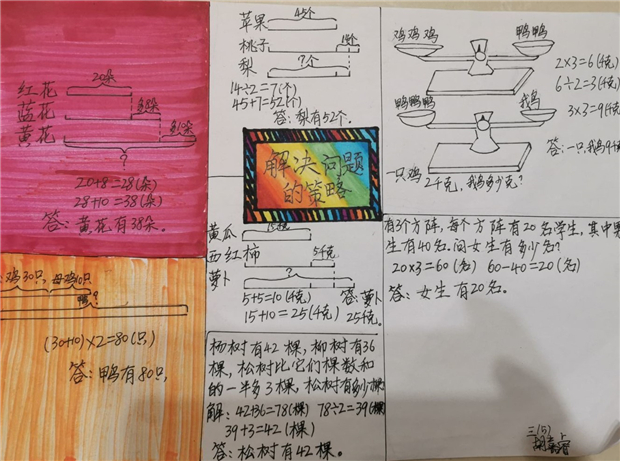 20朵
红花
蓝花
8朵
黄花
10朵
?
20+8=28(朵)
28+10=38(朵)
答:黄花有38朵。
45个
苹果
桃子
14个
梨
?个
14÷2=7(个)
45+7=52(个)
答:梨有52个。
鸡鸡鸡
鸭鸭
2×3=6(千克)
6÷2=3(千克)
鸭鸭鸭
我鸟
3×3=9(千克)
答:一只我鸟9千克
一只鸡2千克,我鸟多少克?
解决问题
的策略
黄瓜
西红柿
5千克
萝卜
?
5+5=10(千克)
15+10=25(千克)
答:萝卜
25千克。
有3个方阵,每个方阵有20名学生,其中男
生有40名,问女生有多少名?
20×3=60(名) 60-40=20(名)
答:女生有20名。
鸡30只,母鸡10只
鸭?
(30+10)×2=80(只)
答:鸭有80只,
杨树有42棵,柳树有36
棵,松树比它们棵数和
的一半多3棵,松树有多少棵
解:42+36=78(棵) 78÷2=39(棵)
39+3=42(棵)
答:松树有42棵。
三(5)